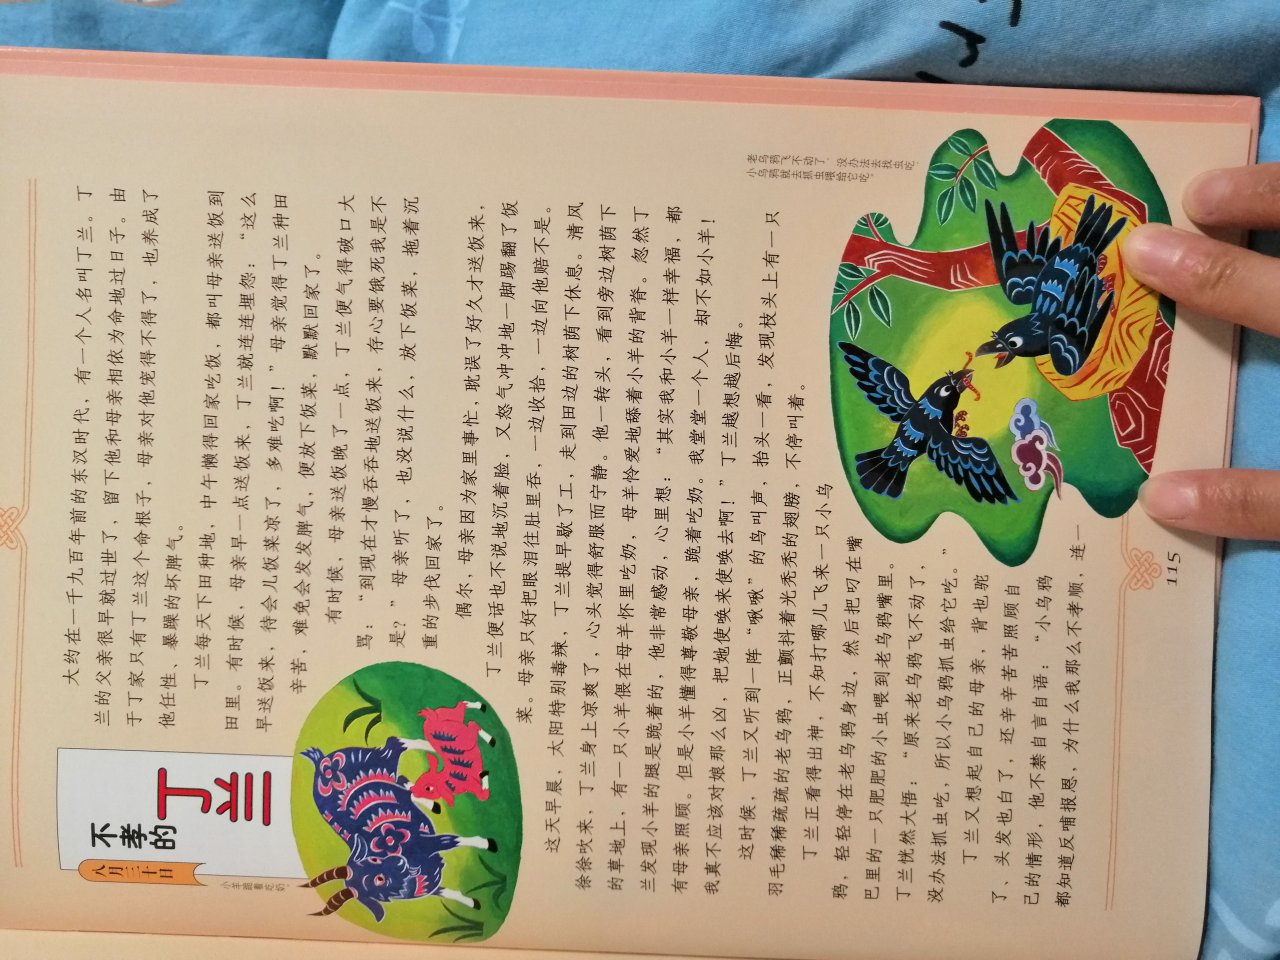 八月三十日
不孝的
丁兰
大约在一千九百年前的东汉时代，有一个人名叫丁兰。丁
兰的父亲很早就过世了，留下他和母亲相依为命地过日子。由
于丁家只有丁兰这个命根子，母亲对他宠得不得了，也养成了
他任性、暴躁的坏脾气。
丁兰每天下田种地，中午懒得回家吃饭，都叫母亲送饭到
田里。有时候，母亲早一点送饭来，丁兰就连连埋怨：“这么
早送饭来，待会儿饭菜凉了，多难吃啊！”母亲觉得丁兰种田
辛苦，难免会发发脾气，便放下饭菜，默默回家了。
有时候，母亲送饭晚了一点，丁兰便气得破口大
骂：“到现在才慢吞吞地送饭来，存心要饿死我是不
是？”母亲听了，也没说什么，放下饭菜，拖着沉
重的步伐回家了。
小羊跪着吃奶。
偶尔，母亲因为家里事忙，耽误了好久才送饭来，
丁兰便话也不说地沉着脸，又怒气冲冲地一脚踢翻了饭
菜。母亲只好把眼泪往肚里吞，一边收拾，一边向他赔不是。
这天早晨，太阳特别毒辣，丁兰提早歇了工，走到田边的树荫下休息。清风
徐徐吹来，丁兰身上凉爽了，心头觉得舒服而宁静。他一转头，看到旁边树荫下
的草地上，有一只小羊偎在母羊怀里吃奶，母羊怜爱地舔着小羊的背脊。忽然丁
兰发现小羊的腿是跪着的，他非常感动，心里想：“其实我和小羊一样幸福，都
有母亲照顾。但是小羊懂得尊敬母亲，跪着吃奶。我堂堂一个人，却不如小羊！
我真不应该对娘那么凶，把她使唤来使唤去啊！”丁兰越想越后悔。
这时候，丁兰又听到一阵“啾啾”的鸟叫声，抬头一看，发现枝头上有一只
羽毛稀稀疏疏的老乌鸦，正颤抖着光秃秃的翅膀，不停叫着。
丁兰正看得出神，不知打哪儿飞来一只小乌
鸦，轻轻停在老乌鸦身边，然后把叼在嘴
巴里的一只肥肥的小虫喂到老乌鸦嘴里。
丁兰恍然大悟：“原来老乌鸦飞不动了，
没办法抓虫吃，所以小乌鸦抓虫给它吃。”
丁兰又想起自己的母亲，背也驼
了、头发也白了，还辛辛苦苦照顾自
己的情形，他不禁自言自语：“小乌鸦
都知道反哺报恩，为什么我那么不孝顺，连一
老乌鸦飞不动了，没办法去找虫吃，
小乌鸦就去抓虫喂给它吃。
115